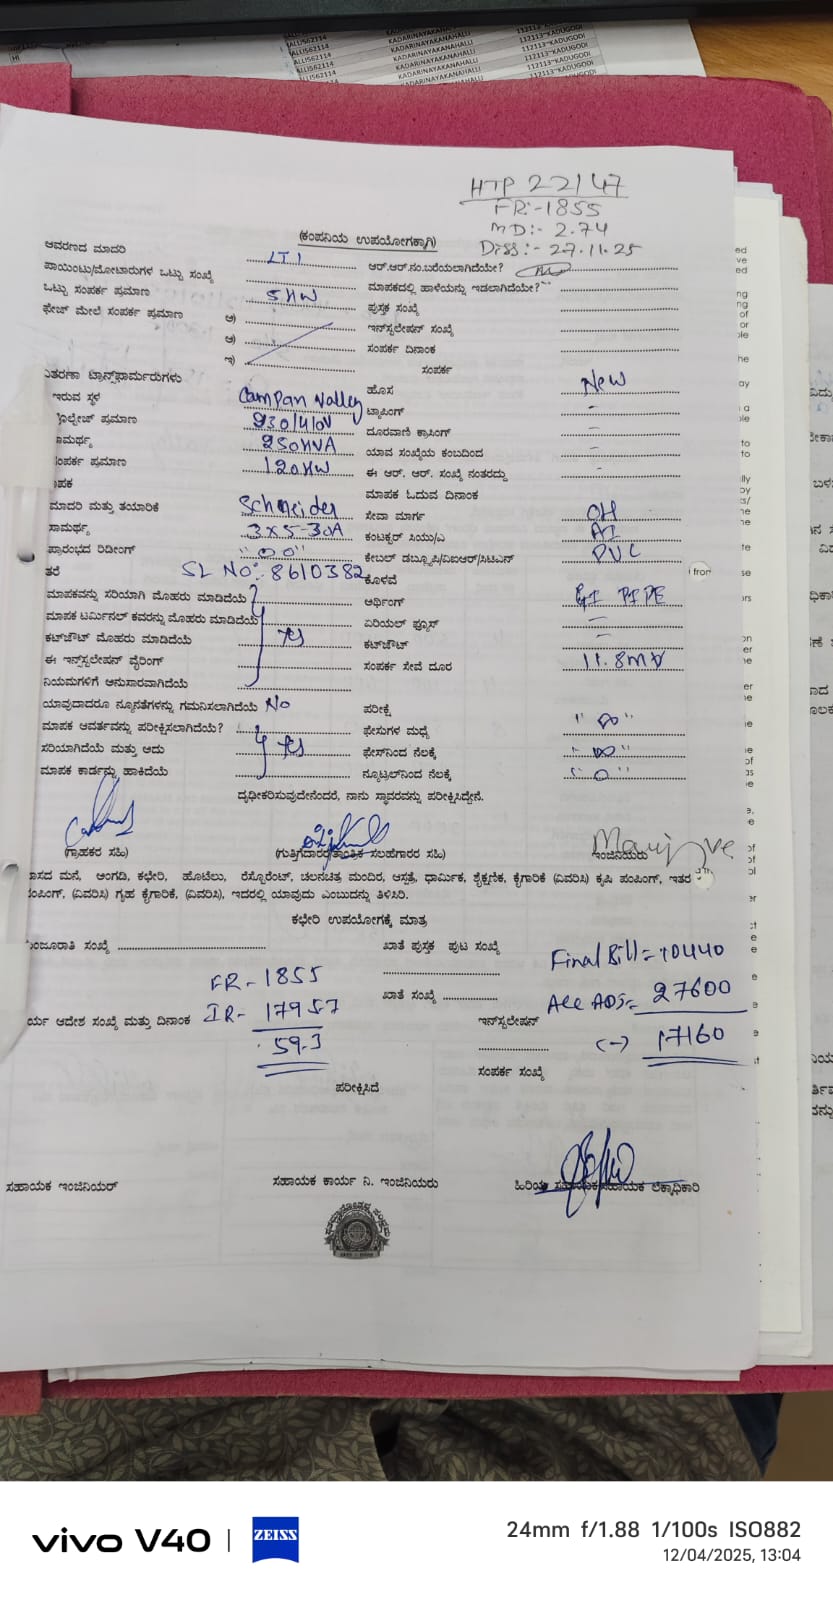 ALLI562114 KADARINAYAKANAHALLI 112113~KADUGODI
ALLI562114 KADARINAYAKANAHALLI 112113~KADUGODI
ALLI562114 KADARINAYAKANAHALLI 112113~KADUGODI
HTP 22147
FR:-1855
MD:- 2.74
Diss:- 27.11.25
(ಕಂಪನಿಯ ಉಪಯೋಗಕ್ಕಾಗಿ)
ಆವರಣದ ಮಾದರಿ LT1 ಆರ್.ಆರ್.ನಂ.ಬರೆಯಲಾಗಿದೆಯೇ?
ಪಾಯಿಂಟು/ಮೋಟಾರುಗಳ ಒಟ್ಟು ಸಂಖ್ಯೆ ಮಾಪಕದಲ್ಲಿ ಹಾಳೆಯನ್ನು ಇಡಲಾಗಿದೆಯೇ?
ಒಟ್ಟು ಸಂಪರ್ಕ ಪ್ರಮಾಣ 5KW ಪುಸ್ತಕ ಸಂಖ್ಯೆ
ಫೇಜ್ ಮೇಲೆ ಸಂಪರ್ಕ ಪ್ರಮಾಣ ಅ) ಇನ್‌ಸ್ಟಲೇಷನ್ ಸಂಖ್ಯೆ
ಆ) ಸಂಪರ್ಕ ದಿನಾಂಕ
ಇ) ಸಂಪರ್ಕ
ವಿತರಣಾ ಟ್ರಾನ್ಸ್‌ಫಾರ್ಮರುಗಳು ಹೊಸ New
ಇರುವ ಸ್ಥಳ Campan Valley ಟ್ಯಾಪಿಂಗ್ -
ವೋಲ್ಟೇಜ್ ಪ್ರಮಾಣ ದೂರವಾಣಿ ಕ್ರಾಸಿಂಗ್ -
ಸಾಮರ್ಥ್ಯ 250KVA ಯಾವ ಸಂಖ್ಯೆಯ ಕಂಬದಿಂದ -
ಸಂಪರ್ಕ ಪ್ರಮಾಣ 120KW ಈ ಆರ್. ಆರ್. ಸಂಖ್ಯೆ ನಂತರದ್ದು -
ಮಾಪಕ ಮಾಪಕ ಓದುವ ದಿನಾಂಕ
ಮಾದರಿ ಮತ್ತು ತಯಾರಿಕೆ Schneider ಸೇವಾ ಮಾರ್ಗ OH
ಸಾಮರ್ಥ್ಯ 3X5-30A ಕಂಟಕ್ಟರ್ ಸಿಯು/ಎ Al
ಪ್ರಾರಂಭದ ರಿಡೀಂಗ್ "00" ಕೇಬಲ್ ಡಬ್ಲ್ಯೂಪಿ/ಪಿಐಆರ್/ಸಿಟಿಎಸ್ PVC
ತರೆ SL NO:- 8610382 ಕೊಳವೆ
ಮಾಪಕವನ್ನು ಸರಿಯಾಗಿ ಮೊಹರು ಮಾಡಿದೆಯೆ? ಅರ್ಥಿಂಗ್ GI PIPE
ಮಾಪಕ ಟರ್ಮಿನಲ್ ಕವರನ್ನು ಮೊಹರು ಮಾಡಿದೆಯೆ ಏರಿಯಲ್ ಫ್ಯೂಸ್ -
ಕಟ್‌ಔಟ್ ಮೊಹರು ಮಾಡಿದೆಯೆ yes ಕಟ್‌ಔಟ್ -
ಈ ಇನ್‌ಸ್ಟಲೇಷನ್ ವೈರಿಂಗ್ ಸಂಪರ್ಕ ಸೇವೆ ದೂರ
ನಿಯಮಗಳಿಗೆ ಅನುಸಾರವಾಗಿದೆಯೆ
ಯಾವುದಾದರೂ ನ್ಯೂನತೆಗಳನ್ನು ಗಮನಿಸಲಾಗಿದೆಯೆ No ಪರೀಕ್ಷೆ
ಮಾಪಕ ಆವರ್ತವನ್ನು ಪರೀಕ್ಷಿಸಲಾಗಿದೆಯೆ? ಫೇಸುಗಳ ಮಧ್ಯೆ "∞"
ಸರಿಯಾಗಿದೆಯೆ ಮತ್ತು ಅದು yes ಫೇಸ್‌ನಿಂದ ನೆಲಕ್ಕೆ "∞"
ಮಾಪಕ ಕಾರ್ಡನ್ನು ಹಾಕಿದೆಯೆ ನ್ಯೂಟ್ರಲ್‌ನಿಂದ ನೆಲಕ್ಕೆ "0"
ದೃಢೀಕರಿಸುವುದೇನೆಂದರೆ, ನಾನು ಸ್ಥಾವರವನ್ನು ಪರೀಕ್ಷಿಸಿದ್ದೇನೆ.
(ಗ್ರಾಹಕರ ಸಹಿ) (ಗುತ್ತಿಗೆದಾರರ/ತಾಂತ್ರಿಕ ಸಲಹೆಗಾರರ ಸಹಿ) ಇಂಜಿನಿಯರು
ವಾಸದ ಮನೆ, ಅಂಗಡಿ, ಕಛೇರಿ, ಹೊಟೇಲು, ರೆಸ್ಟೊರೆಂಟ್, ಚಲನಚಿತ್ರ ಮಂದಿರ, ಆಸ್ಪತ್ರೆ, ಧಾರ್ಮಿಕ, ಶೈಕ್ಷಣಿಕ, ಕೈಗಾರಿಕೆ (ವಿವರಿಸಿ) ಕೃಷಿ ಪಂಪಿಂಗ್, ಇತರ
ಪಂಪಿಂಗ್, (ವಿವರಿಸಿ) ಗೃಹ ಕೈಗಾರಿಕೆ, (ವಿವರಿಸಿ), ಇದರಲ್ಲಿ ಯಾವುದು ಎಂಬುದನ್ನು ತಿಳಿಸಿರಿ.
ಕಛೇರಿ ಉಪಯೋಗಕ್ಕೆ ಮಾತ್ರ
ಮಂಜೂರಾತಿ ಸಂಖ್ಯೆ ಖಾತೆ ಪುಸ್ತಕ ಪುಟ ಸಂಖ್ಯೆ Final Bill = 10440
FR- 1855
ಖಾತೆ ಸಂಖ್ಯೆ Acc ADJ= 27600
ಕಾರ್ಯ ಆದೇಶ ಸಂಖ್ಯೆ ಮತ್ತು ದಿನಾಂಕ IR- 1795.7 ಇನ್‌ಸ್ಟಲೇಷನ್
59.3 (-) 17160
ಸಂಪರ್ಕ ಸಂಖ್ಯೆ
ಪರೀಕ್ಷಿಸಿದೆ
ಸಹಾಯಕ ಇಂಜಿನಿಯರ್ ಸಹಾಯಕ ಕಾರ್ಯ ನಿ. ಇಂಜಿನಿಯರು ಹಿರಿಯ ಸಹಾಯಕ/ಸಹಾಯಕ ಲೆಕ್ಕಾಧಿಕಾರಿ
vivo V40 | ZEISS
24mm f/1.88 1/100s ISO882
12/04/2025, 13:04